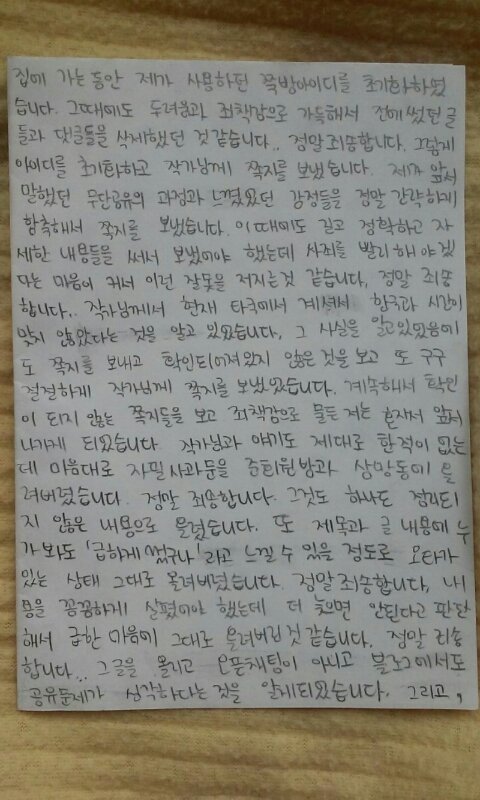 집에 가는동안 제가 사용하던 쪽방아이디를 초기화하였
습니다. 그때에도 두려움과 죄책감으로 가득해서 전에 썼던 글
들과 댓글들을 삭제했던 것 같습니다.. 정말죄송합니다. 그렇게
아이디를 초기화하고 작가님께 쪽지를 보냈습니다. 제가 앞서
말했던 무단공유의 과정과 느꼈었던 감정들을 정말 간략하게
함축해서 쪽지를 보냈습니다. 이때에도 길고 정확하고 자
세한 내용들을 써서 보냈어야 했는데 사죄를 빨리해야겠
다는 마음이 커서 이런 잘못을 저지른것 같습니다, 정말 죄송
합니다.. 작가님께서 현재 타국에서 계셔서 한국과 시간이
맞지 않았다는 것을 알고 있었습니다, 그 사실을 알고있었음에
도 쪽지를 보내고 확인되어져있지 않은 것을 보고 또 구구
절절하게 작가님께 쪽지를 보냈었습니다. 계속해서 확인
이 되지 않는 쪽지들을 보고 죄책감으로 물든 저는 혼자서 앞서
나가게 되었습니다. 작가님과 얘기도 제대로 한적이 없는
데 마음대로 자필사과문을 증티원방과 삼망동에 올
려버렸습니다. 정말 죄송합니다. 그것도 하나도 정리되
지 않은 내용으로 올렸습니다. 또 제목과 글 내용에 누
가 봐도 '급하게 썼구나' 라고 느낄 수 있을 정도로 오타가
있는 상태 그대로 올려버렸습니다. 정말죄송합니다, 내
용을 꼼꼼하게 살폈어야 했는데 더 늦으면 안된다고 판단
해서 급한 마음에 그대로 올려버린것 같습니다. 정말 죄송
합니다.. 그글을 올리고 오픈채팅이 아니고 블로그에서도
공유문제가 심각하다는 것을 알게되었습니다. 그리고,